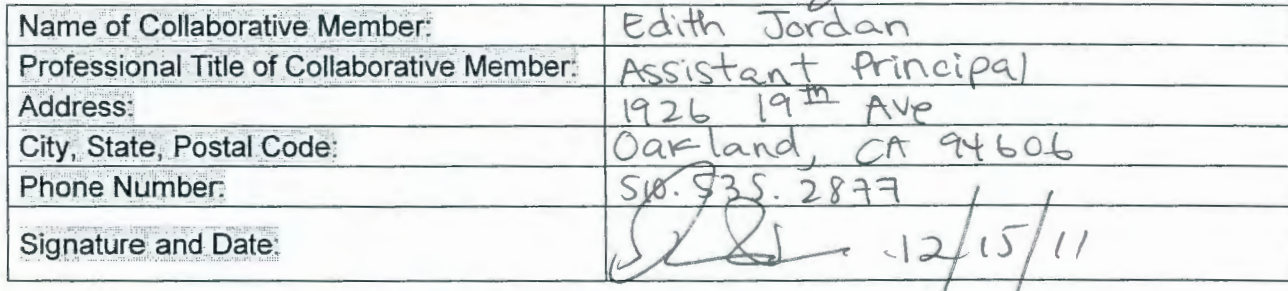 Name of Collaborative Member: Edith Jordan
Professional Title of Collaborative Member: Assistant Principal
Address: 1926 19th Ave
City, State, Postal Code: Oakland, CA 94606
Phone Number: 510.535.2877
Signature and Date: 12/15/11